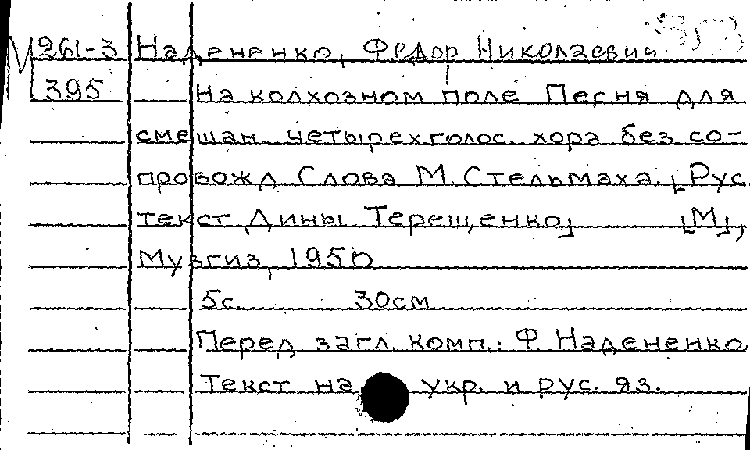 М 261-3 Надененко, Федор Николаевич
395 На колхозном поле Песня для
смешан. четырехголос. хора без со-
провожд Слова М. Стельмаха. [Рус.
текст Дины Терещенко] [М],
Музгиз, 1950
5с. 30см
Перед загл. комп.: Ф. Надененко
Текст на укр. и рус. яз.